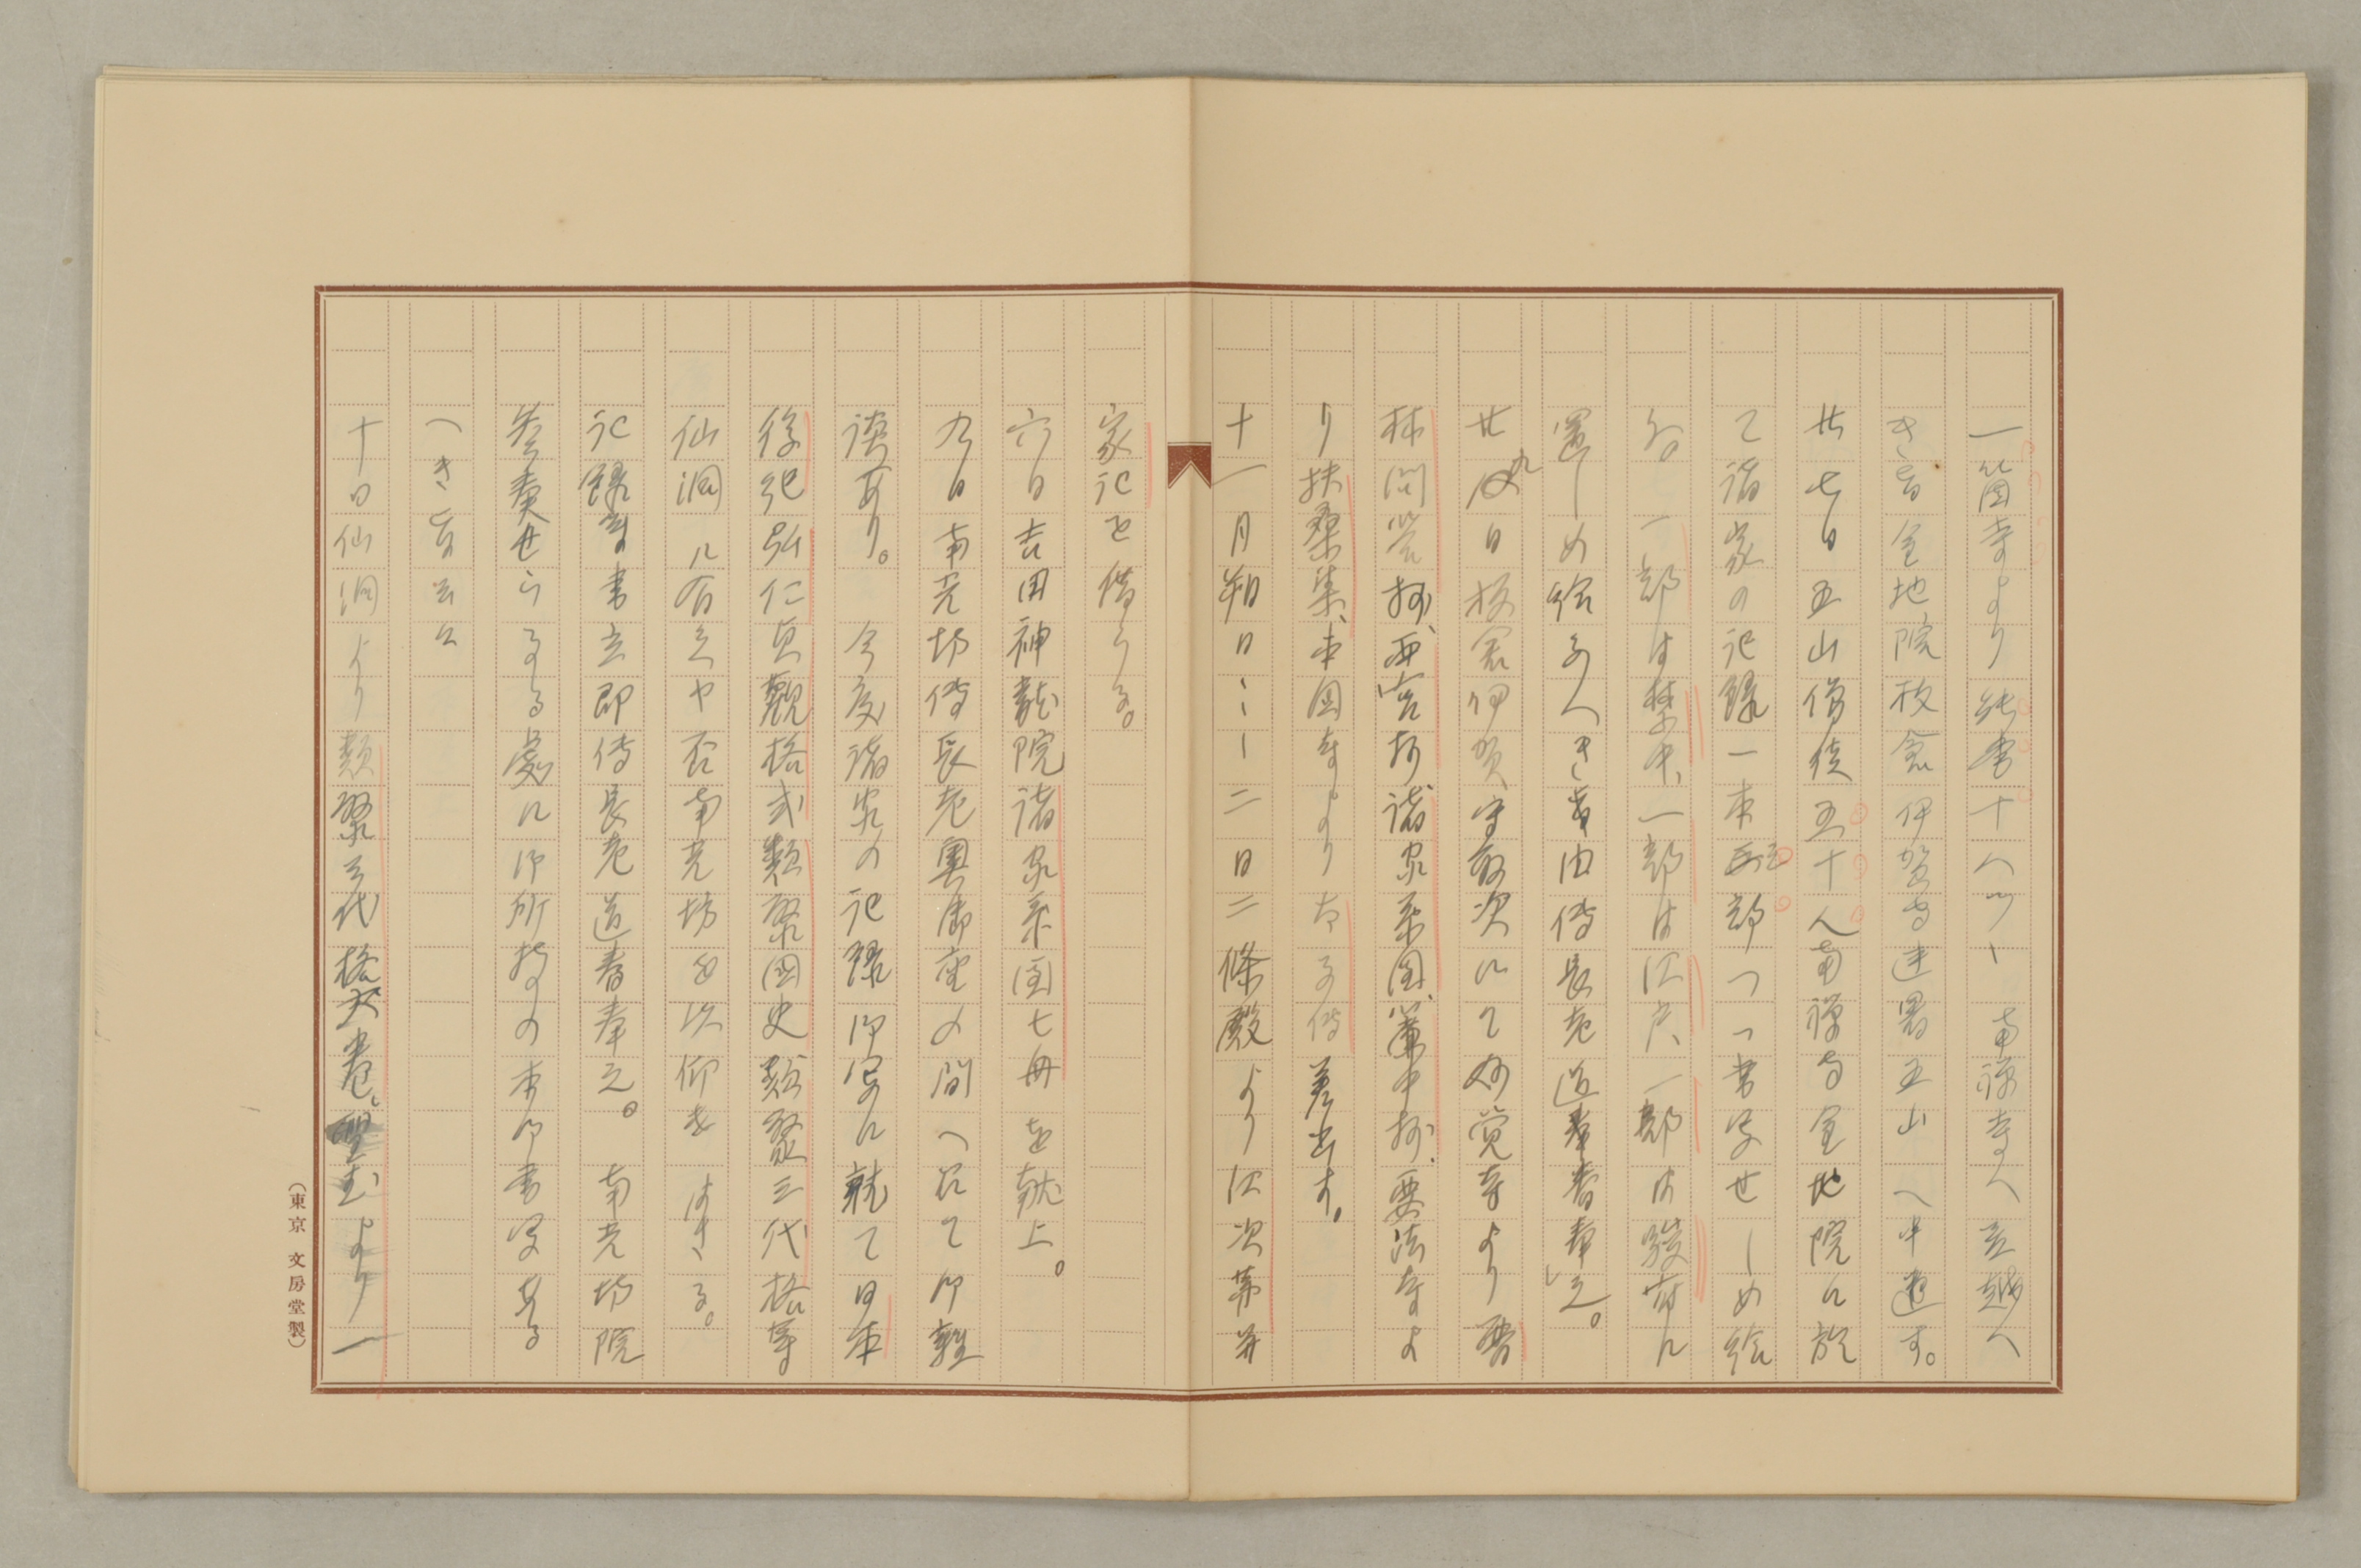 一箇寺より能書十人ツヽ南禅寺へ立越へ
き旨金地院板倉伊賀守連署五山へ申遣す。
廿七日五山僧侶五十人南禅寺金地院に於
て諸家の記録一本三部つつ書写せしめ給
ふ 一部は禁中、一部は江戸、一部は駿府に
置しめ給ふへき旨由傳長老道春奉之。
廿九日板倉伊賀守取次にて妙覚寺より
林問答抄、西宮抄、諸家系図、簾中抄、要法寺よ
り扶桑集、本国寺より 差出す。
十一月朔日ーーー二日二條殿より江次第并
家記を借らる。
六日吉田神龍院諸家系図七冊を献上。
九日南光坊傳長老奥御座の間へ召て御雑
談あり。 今度諸家の記録御写に就て日本
後紀弘仁貞觀格式類聚国史類聚三代格等
仙洞に有之や否南光坊を以仰せ らる。
記録等書立即傳長老道春奉之。 南光坊院
参奏せらるる處に御所持の本御書写ある
へき旨云々
十日仙洞より類聚三代格六巻、 より一
(東京 文房堂製)